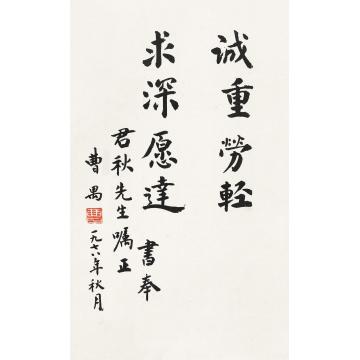 诚重勞軽
求深愿達 書奉
君秋先生嘱正
曹禺
一九七八年秋月